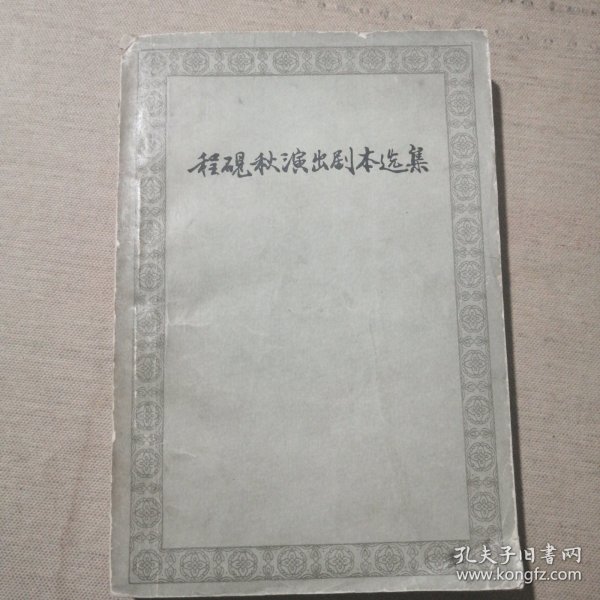 程砚秋演出剧本选集
孔夫子旧書网
www.kongfz.com